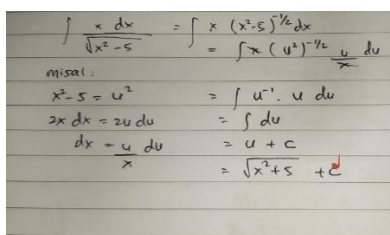 ∫ x dx / √(x²-5) = ∫ x (x²-5)^(-1/2) dx
= ∫ x (u²)^(-1/2) u/x du
misal:
x²-5 = u² = ∫ u^(-1) . u du
2x dx = 2u du = ∫ du
dx = u/x du = u + c
= √(x²+5) + c